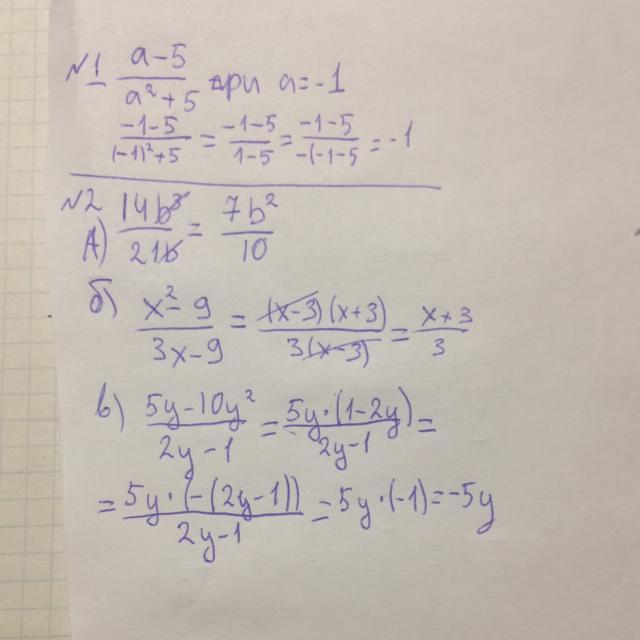 №1 a-5/a²+5 при a=-1
-1-5/(-1)²+5 = -1-5/1-5 = -1-5/-(-1-5 = -1
№2
А) 14b³/21b = 7b²/10
б) x²-9/3x-9 = (x-3)(x+3)/3(x-3) = x+3/3
в) 5y-10y²/2y-1 = 5y·(1-2y)/2y-1 =
= 5y·(-(2y-1))/2y-1 = 5y·(-1)=-5y